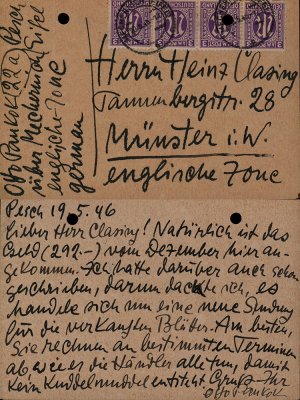 Otto Pankok 22a Pesch
über Mechernich Eifel
englische Zone
german
Herrn Heinz Clasing
Tannenbergstr. 28
Münster i.W.
englische Zone
Pesch 19.5.46
Lieber Herr Clasing! Natürlich ist das
Geld (292.-) vom Dezember hier an-
gekommen. Ich hatte darüber auch schon
geschrieben, darum dachte ich, es
handele sich um eine neue Sendung
für die verkauften Blätter. Am besten,
Sie rechnen an bestimmten Terminen
ab wie es die Händler alle tun, damit
kein Kuddelmuddel entsteht Gruß Ihr
Otto Pankok